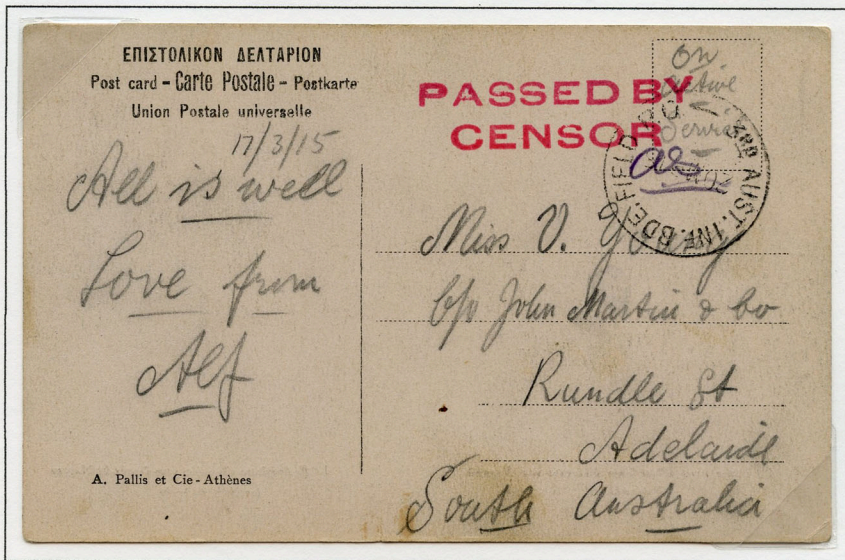 ΕΠΙΣΤΟΛΙΚΟΝ ΔΕΛΤΑΡΙΟΝ
Post card - Carte Postale - Postkarte
Union Postale universelle
17/3/15
All is well
Love from
Alf
A. Pallis et Cie - Athènes
On
Active
Service
PASSED BY
CENSOR
3RD AUST. INF. BDE. FIELD P.O.
Miss V.
c/o John Martin & Co
Rundle St
Adelaide
South Australia